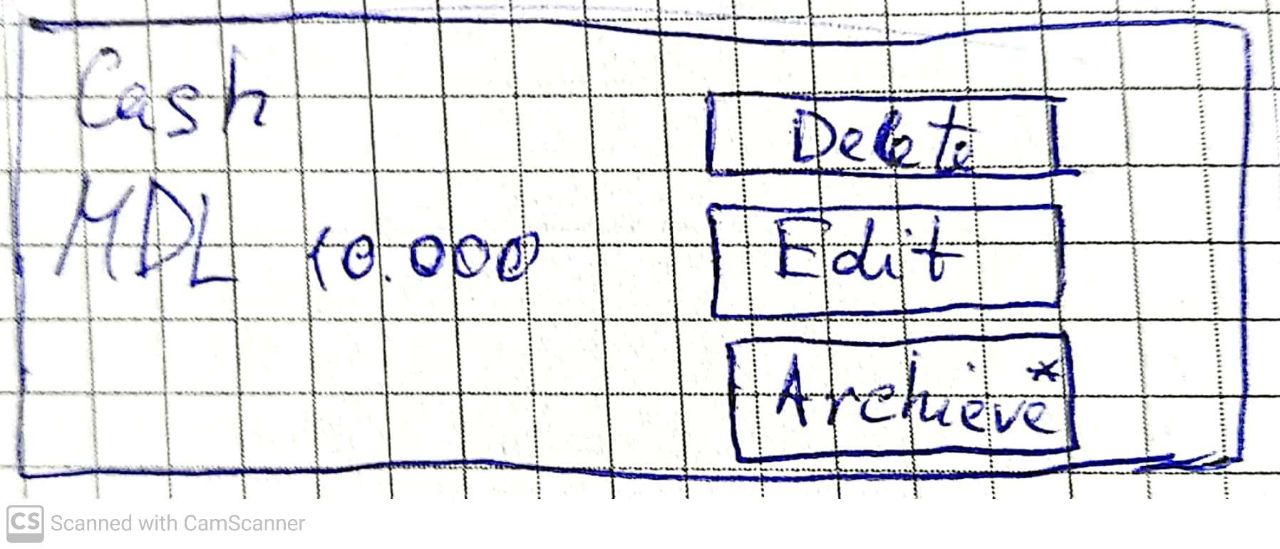 Cash
MDL 10.000
Delete
Edit
Archieve*
CS Scanned with CamScanner